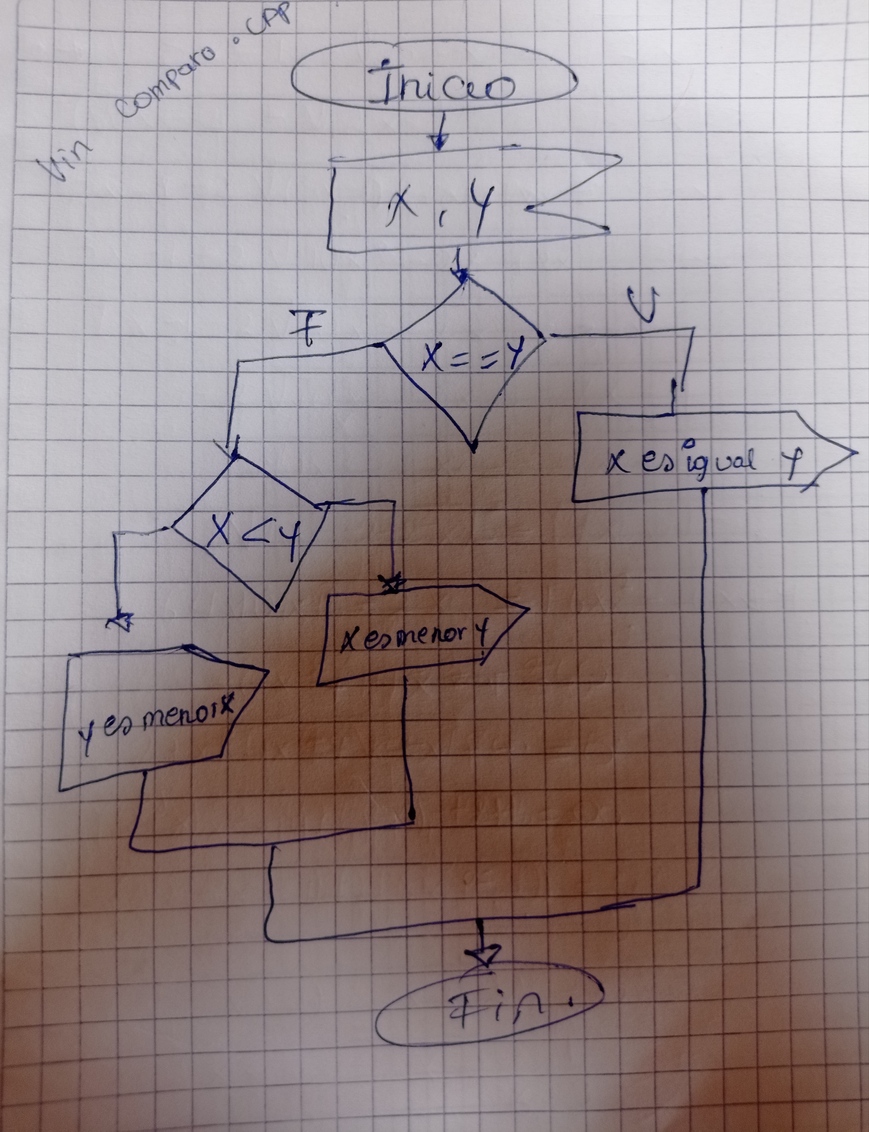 Vin Comparo.CPP
Inicio
X, Y
F
V
X==Y
X es igual Y
X<Y
X es menor Y
Y es menor X
Fin.